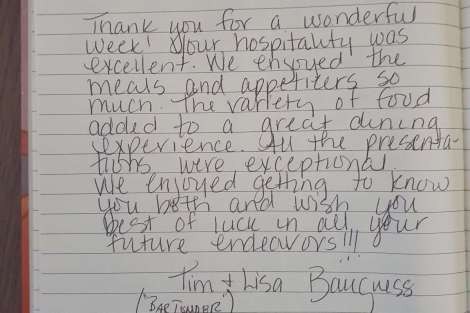 Thank you for a wonderful
week! Your hospitality was
excellent. We enjoyed the
meals and appetizers so
much. The variety of food
added to a great dining
experience. All the presenta-
tions were exceptional.
We enjoyed getting to know
you both and wish you
best of luck in all your
future endeavors!!!
Tim + Lisa Bauguess
("BARTENDER")